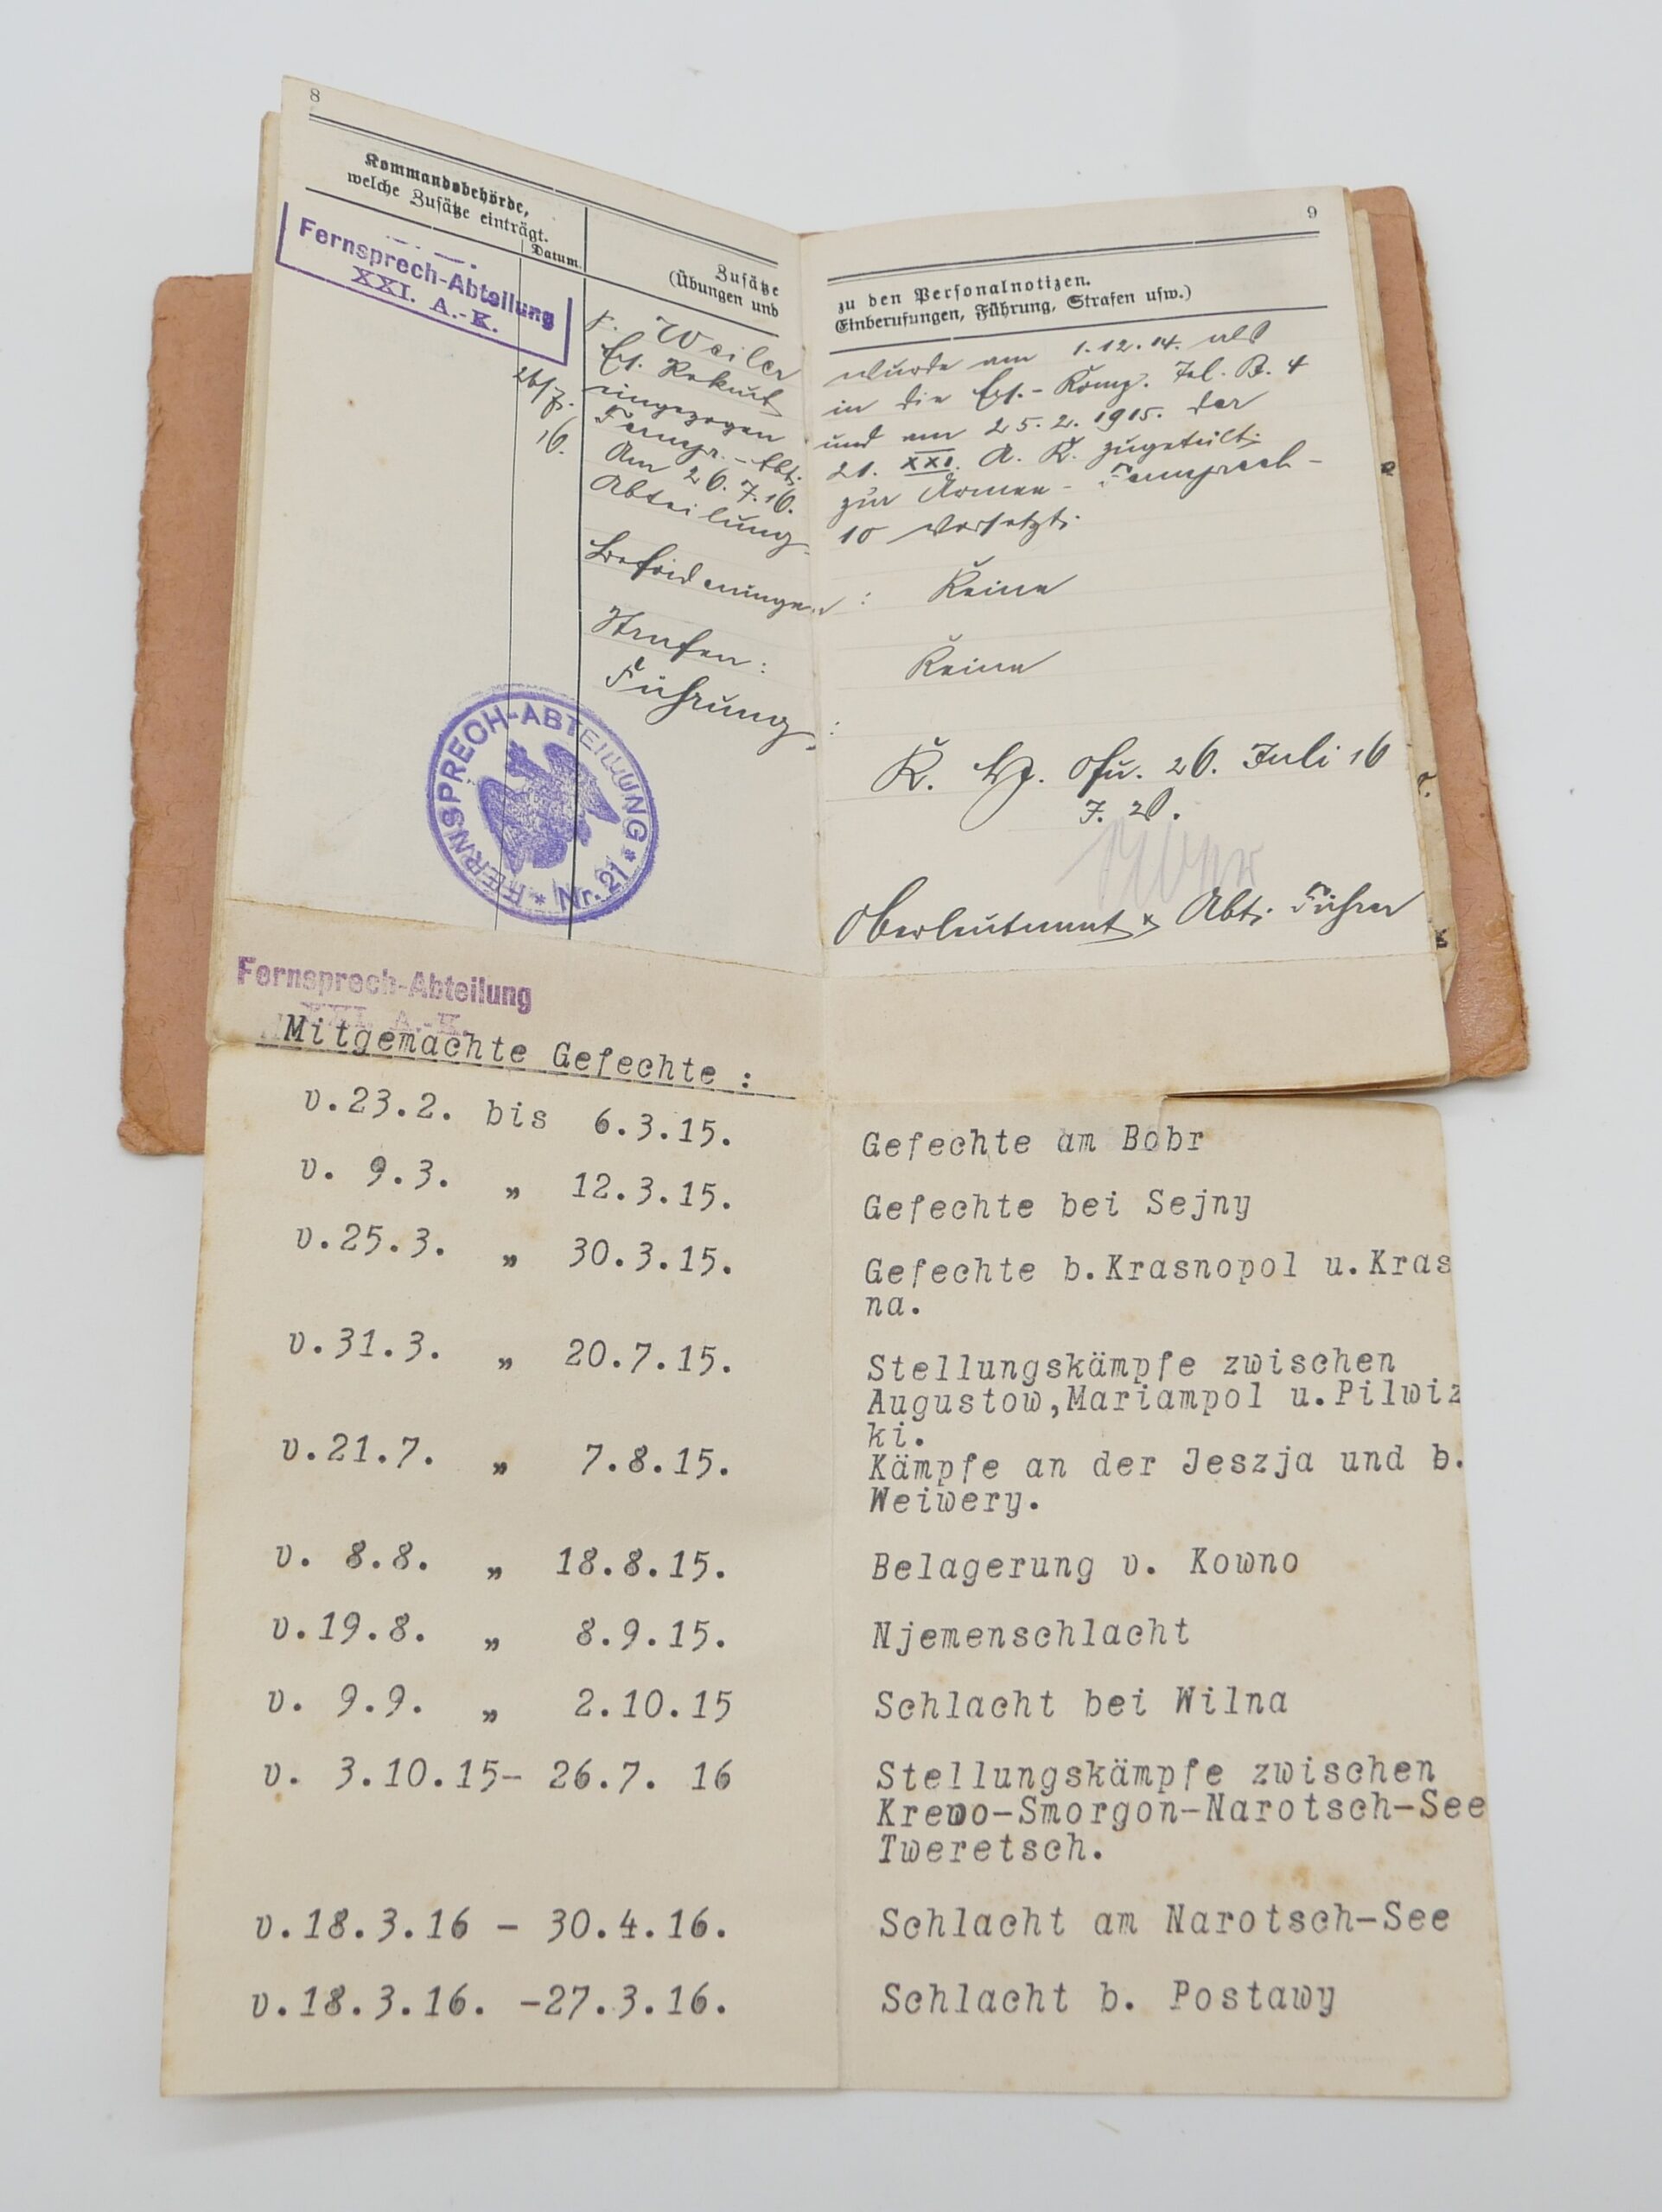 8
Kommandobehörde,
welche Zusätze einträgt.
Datum.
Zusätze
(Übungen und
Fernsprech-Abteilung
XXI. A.-K.
26/7.
16.
Weiler
Ers. Rekrut
eingezogen
Fernspr.-Abt.
Am 26.7.16.
Abteilung
Beförderungen
Strafen:
Führung
FERNSPRECH-ABTEILUNG * Nr. 21 *
9
zu den Personalnotizen.
Einberufungen, Führung, Strafen usw.)
wurde am 1.12.14. als
in die Ers.-Komp. Tel. B. 4
und am 25.2.1915. der
21. XXI. A. K. zugeteilt.
zur Armee-Fernsprech-
10 versetzt.
: Keine
Keine
:
26. Juli 16
Oberleutnant & Abt. Führer
Fernsprech-Abteilung
XXI. A.-K.
Mitgemachte Gefechte :
v.23.2. bis 6.3.15. Gefechte am Bobr
v. 9.3. „ 12.3.15. Gefechte bei Sejny
v.25.3. „ 30.3.15. Gefechte b.Krasnopol u.Kras
na.
v.31.3. „ 20.7.15. Stellungskämpfe zwischen
Augustow,Mariampol u.Pilwiz
ki.
v.21.7. „ 7.8.15. Kämpfe an der Jeszja und b.
Weiwery.
v. 8.8. „ 18.8.15. Belagerung v. Kowno
v.19.8. „ 8.9.15. Njemenschlacht
v. 9.9. „ 2.10.15 Schlacht bei Wilna
v. 3.10.15- 26.7. 16 Stellungskämpfe zwischen
Krewo-Smorgon-Narotsch-See
Tweretsch.
v.18.3.16 - 30.4.16. Schlacht am Narotsch-See
v.18.3.16. -27.3.16. Schlacht b. Postawy